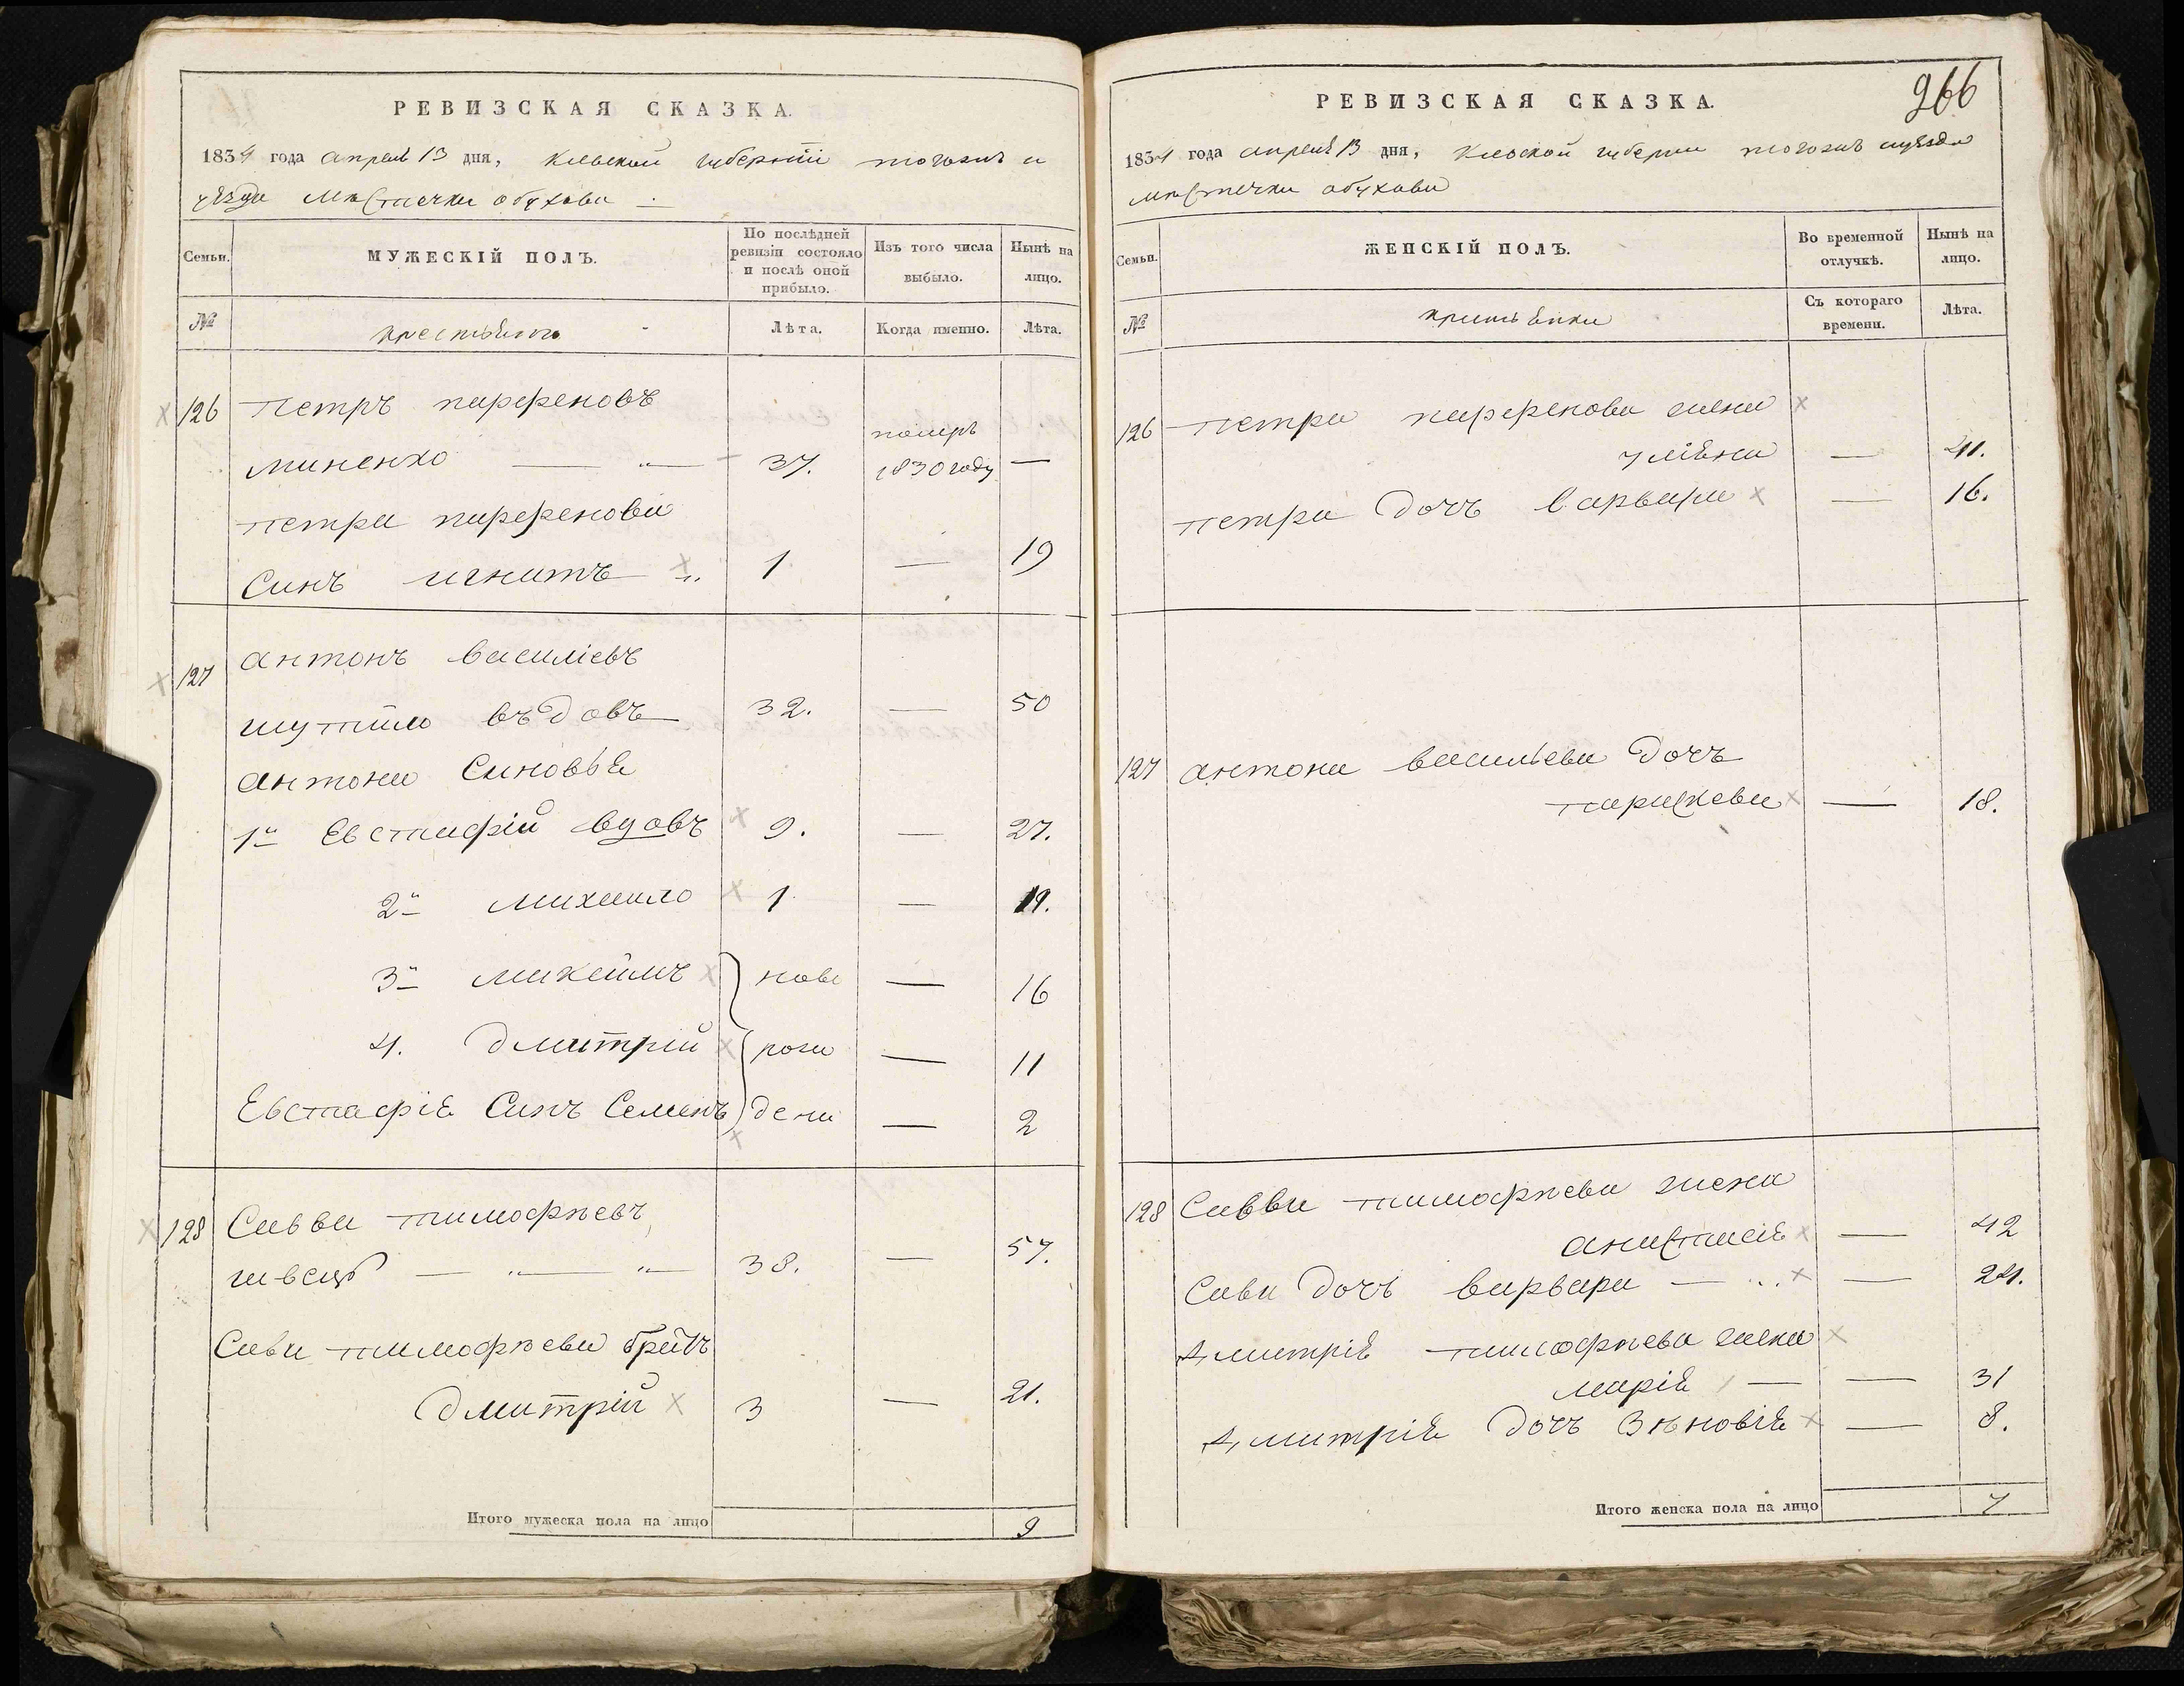 РЕВИЗСКАЯ СКАЗКА.
1834 года апреля 13 дня, Киевской губернїи тогожъ и
уѣзда мѣстечка обухова
Семьи.
МУЖЕСКІЙ ПОЛЪ.
По послѣдней ревизіи состояло и послѣ оной прибыло.
Изъ того числа выбыло.
Нынѣ на лицо.
№
крестьянъ
Лѣта.
Когда именно.
Лѣта.
126 Петръ парфеновъ
миненко — „ — 37. помръ 1830 году —
петра парфенова
Синъ игнатъ „ 1 — 19
127 антонъ василіевъ
шутило въдовъ 32. — 50
антона Синовья
1й Евстафій вдовъ 9. — 27.
2й михайло 1 — 19.
3й микита нове — 16
4. дмитрій рож — 11
Евстафія Синъ Семенъ дени — 2
128 Савва тимофѣевъ
швецъ — „ — „ — 38. — 57.
Савы тимофѣева братъ
дмитрій 3 — 21.
Итого мужеска пола на лицо 9
266
РЕВИЗСКАЯ СКАЗКА.
1834 года апреля 13 дня, Киевской губернии тогожъ уѣзда
мѣстечка обухова
Семьи.
ЖЕНСКІЙ ПОЛЪ.
Во временной отлучкѣ.
Нынѣ на лицо.
№
крестьянки
Съ котораго времени.
Лѣта.
126 Петра парфенова жена
улияна — 41.
петра дочъ варвара — 16.
127 антона васильева дочъ
параскева — 18.
128 Саввы тимофѣева жена
анастасия — 42
Савы дочъ варвара — „ — 24.
дмитрія тимофѣева жена
марія — — 31
дмитрія дочъ Зѣновія — 8.
Итого женска пола на лицо 7